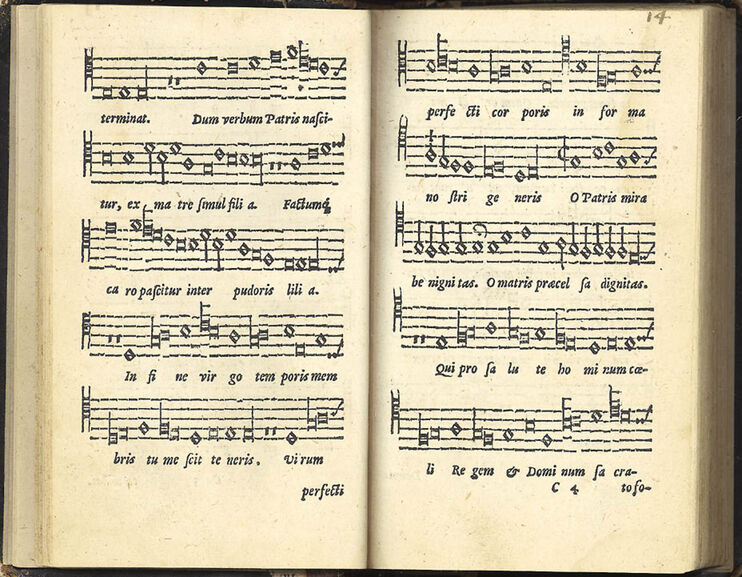 terminat. Dum verbum Patris nasci-
tur, ex ma tre simul fili a. Factumq́;
ca ro pascitur inter pudoris lili a.
In fi ne vir go tem poris mem
bris tu me scit te neris. Vi rum
perfecti
14
perfe cti cor poris in for ma
no stri ge neris O Patris mira
be nigni tas. O matris præcel sa dignitas.
Qui pro sa lu te ho mi num cœ-
li Re gem & Domi num sa cra-
C 4 to fo-